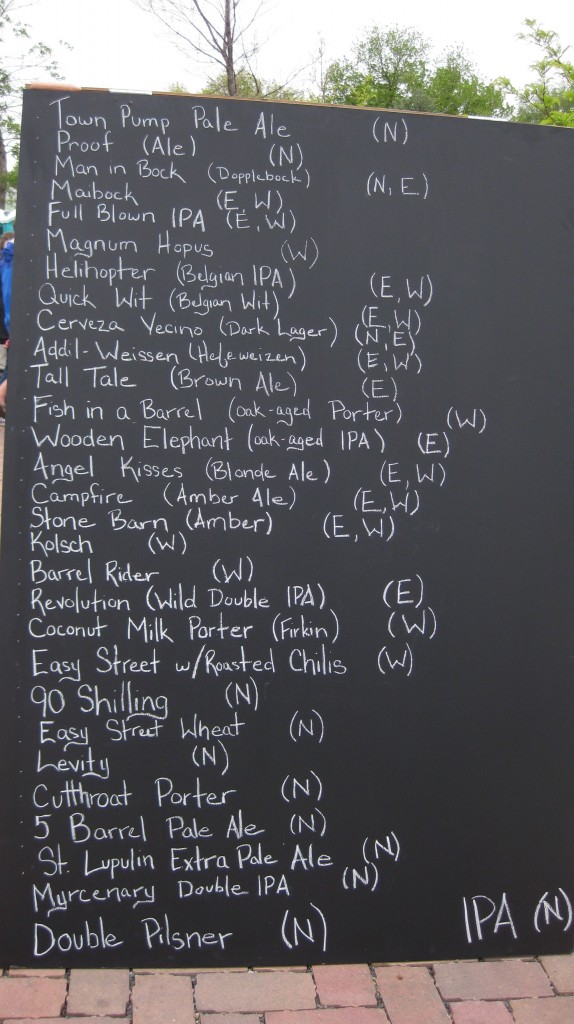 Town Pump Pale Ale (N)
Proof (Ale) (N)
Man in Bock (Dopplebock) (N, E)
Maibock (E, W)
Full Blown IPA (E, W)
Magnum Hopus (W)
Helihopter (Belgian IPA) (E, W)
Quick Wit (Belgian Wit) (E, W)
Cerveza Vecino (Dark Lager) (N, E)
Addil-Weissen (Hefeweizen) (E, W)
Tall Tale (Brown Ale) (E)
Fish in a Barrel (oak-aged Porter) (W)
Wooden Elephant (oak-aged IPA) (E)
Angel Kisses (Blonde Ale) (E, W)
Campfire (Amber Ale) (E, W)
Stone Barn (Amber) (E, W)
Kolsch (W)
Barrel Rider (W)
Revolution (Wild Double IPA) (E)
Coconut Milk Porter (Firkin) (W)
Easy Street w/Roasted Chilis (W)
90 Shilling (N)
Easy Street Wheat (N)
Levity (N)
Cutthroat Porter (N)
5 Barrel Pale Ale (N)
St. Lupulin Extra Pale Ale (N)
Myrcenary Double IPA (N)
Double Pilsner (N) IPA (N)